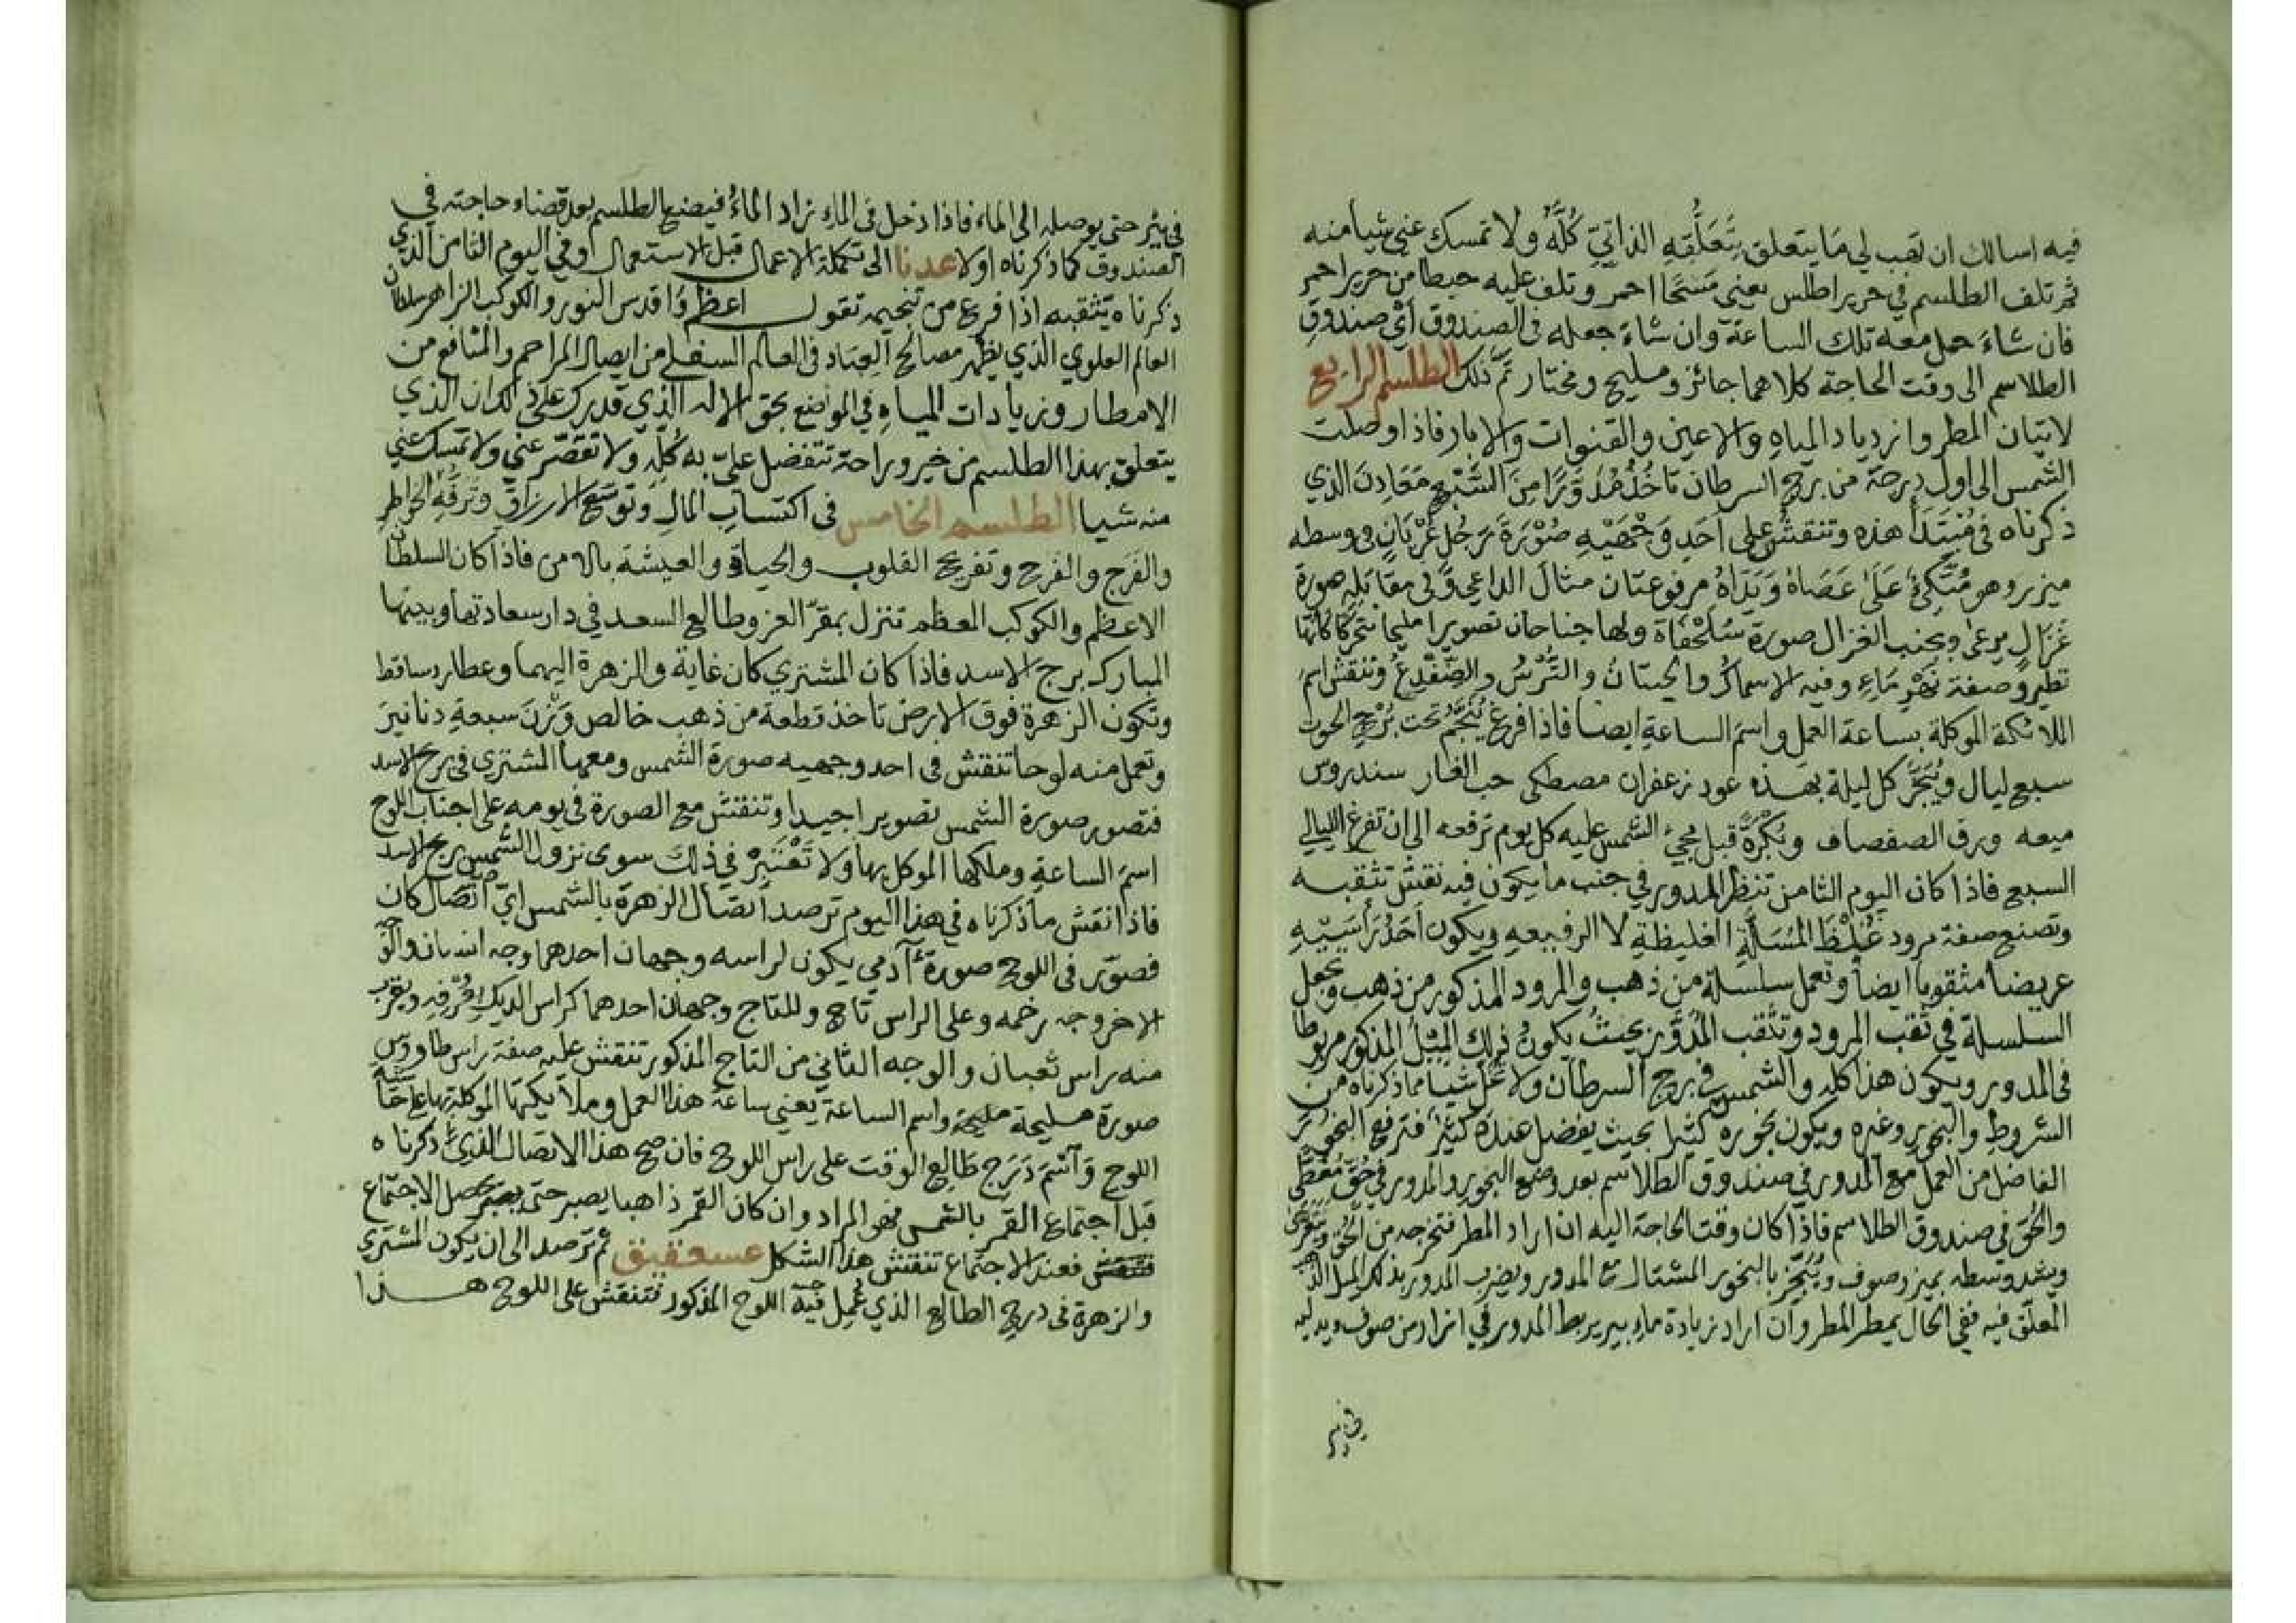 فيه اسالك ان تهب لي مَا يتعلق بِتَعَلُّقِهِ الذاتِيِّ كُلَّهُ ولا تمسك عني شيأ منه
ثم تلف الطلسم في حرير اطلس يعني احمر وتلف عليه خيطا من حرير احمر
فان شاءَ حمل معه تلك الساعة وان شاءَ جعله في الصندوق أيْ صندوق
الطلاسم الى وقت الحاجة كلاهما جائز ومليح ومختار تمَّ ذلك الطلسم الرابع
لاتيان المطر وازدياد المياهِ والاعين والقنوات والابار فاذا وصلت
الشمس الى اول درجة من برج السرطان تاخُذُ مُدَوَّرًا مِنَ الشَّبَهِ مَعَادِنَ الذي
ذكرناه في مُبْتَدَأ هذه وتنقش على اَحَدِ وَجْهَيْهِ صُوْرَةَ رَجُلٍ عُرْيَانٍ في وسطه
ميزر وهو مُتَّكِئ عَلَى عَصَاهُ وَيَدَاهُ مرفوعتان مثالَ الداعي وَفى مقابَلِهِ صورة
غَزَالٍ يرعى وبجنب الغزال صورة سُلَحْفَاة ولها جناحان تصويرا مليحاً متحركا كانها
تطير وصفة نَهْرِ مَاءٍ وفيه الاسماك والحيتان والتُّرْسُ والضّفْدِعُ وتنقش اسمَ
الملائكة الموكلة بساعة العمل واسمَ الساعةِ ايضا فاذا فرغ يُنَجَّمُ تحت بُرْجِ الحوت
سبع ليال ويُبَخَّرُ كل ليلة بهذه عود زعفران مصطكى حب الغار سندروس
ميعه ورق الصفصاف وبُكْرَةً قبل مجئ الشمس عليه كل يوم ترفعه الى ان تفرغ الليالي
السبع فاذا كان اليوم الثامن تنظر المدور في جنب ما يكون فيه نقش تثقبه
وتصنع صفة مرود غِلَظَ المُسَلَّةِ الغليظةِ لا الرفيعه ويكون اَحَدُ رَأسَيْهِ
عريضا مثقوبا ايضاً وتعمل سلسلة من ذهب والمرود المذكور من ذهب وتجعل
السلسلة في ثقب المرود وتثقب المُدَوَّرَ بحيثُ يكونُ ذلك المِيْلُ المذكور مربوطا
في المدور ويكون هذا كله والشمس في برج السرطان ولا تُخِلَّ شيأ مما ذكرناه من
الشروطِ والبخورِ وغيره ويكون بخوره كثيرا بحيث يفضل عنده كثير فترفع البخورَ
الفاضل من العمل مع المدور في صندوق الطلاسم بعد وضع البخور والمدور في حُقٍّ مُغَطًّى
والحُق في صندوق الطلاسم فاذا كان وقت الحاجة اليه ان اراد المطر فتخرجه من الحُق ويتعرى
ويشد وسطه بميزر صوف ويُبَخَّرُ بالبخور المشتال مع المدور ويضرب المدور بذلك الميل الذهب
المعلق فيه ففي الحال يمطر المطر وان اراد زيادة ماءِ بيرٍ يربط المدور في ازار من صوف ويدليه
في بئر
في بئر حتى يوصله الى الماء فاذا دخل في الماءِ زاد الماءُ فيضع الطلسم بعد قضاء حاجته في
الصندوق كما ذكرناه اولا عدنا الى تكملة الاعمال قبل الاستعمال وفي اليوم الثامن الذي
ذكرناه يتثقبه اذا فرغ من تنجيمه تقول اعظَمَ وَاقدس النور والكوكب الزاهر سلطان
العالم العلوي الذي يظهر مصالح العباد في العالم السفلي من ايصال المراحم والمنافع من
الامطار وزيادات المياهِ في المواضع بحق الاله الذي قدرك على ذلك ان الذي
يتعلق بهذا الطلسم من خير وراحة تتفضل عليّ به كُلِّهِ ولا تقصّر عني ولا تمسك عني
منه شيا الطلسم الخامس في اكتساب المال وتوسّع الارزاق وترفّه الخواطر
والفَرَج والفرح وتفريح القلوب والحياة والعيشة بالامن فاذا كان السلطان
الاعظم والكوكب المعظم تنزل بمقرّ العز وطالع السعد في دار سعادتها وبيتها
المبارك برج الاسد فاذا كان المشتري كان غاية والزهرة اليهما وعطارد ساقط
وتكون الزهرة فوق الارض تاخذ قطعة من ذهب خالص وَزْنَ سبعةِ دنانيرَ
وتعمل منه لوحا تنقش في احد وجهيه صورة الشمس ومعها المشتري في برج الاسد
فتصور صورة الشمس تصويرا جيدا وتنقش مع الصورة في يومه على اجناب اللوح
اسمَ الساعةِ وملكها الموكل بها ولا تَعْتَبِرْ في ذلكَ سوى نزول الشمس برج الاسد
فاذا نقش ما ذكرناه في هذا اليوم ترصد اتصال الزهرة بالشمس ايّ اتصال كان
فصوّر في اللوح صورة آدمي يكون لراسه وجهان احدهما وجه انسان والوجه
الاخر وجه رخمه وعلى الراس تاج وللتاج وجهان احدهما كراس الديك بِعُرْفِهِ وبقرب
منه راس ثعبان والوجه الثاني من التاج المذكور تنقش عليه صفة راس طاووس
صورة مليحة مليحة واسم الساعة يعني ساعة هذا العمل وملايكتها الموكلة بها على حاشية
اللوح وَاسْمَ دَرَج طَالِع الوقت على راس اللوح فان صح هذا الاتصال الذي ذكرناه
قبل اجتماع القمر بالشمس فهو المراد وان كان القمر ذاهبا يصبر حتى يحصل الاجتماع
فعند الاجتماع تنقش هذا الشكل عسعفيق ثم ترصد الى ان يكون المشتري
والزهرة في درج الطالع الذي عُمِلَ فيه اللوح المذكور فتنقش على اللوح هذا